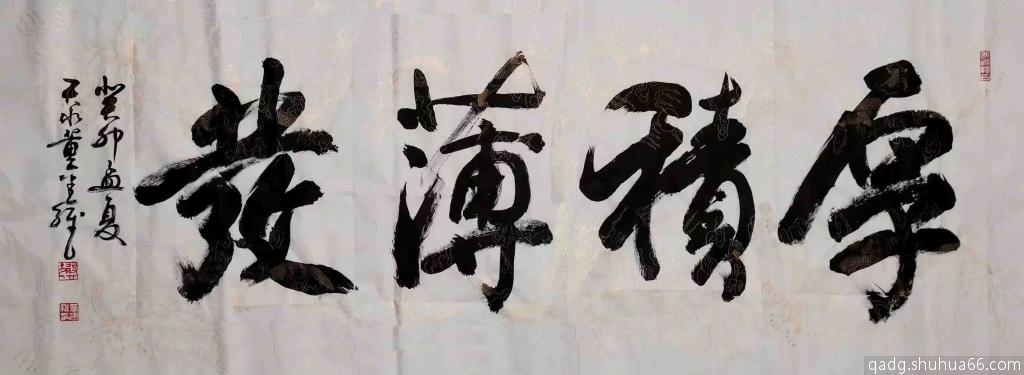 厚積薄發
癸卯孟夏
天水董全
qadg.shuhua66.com